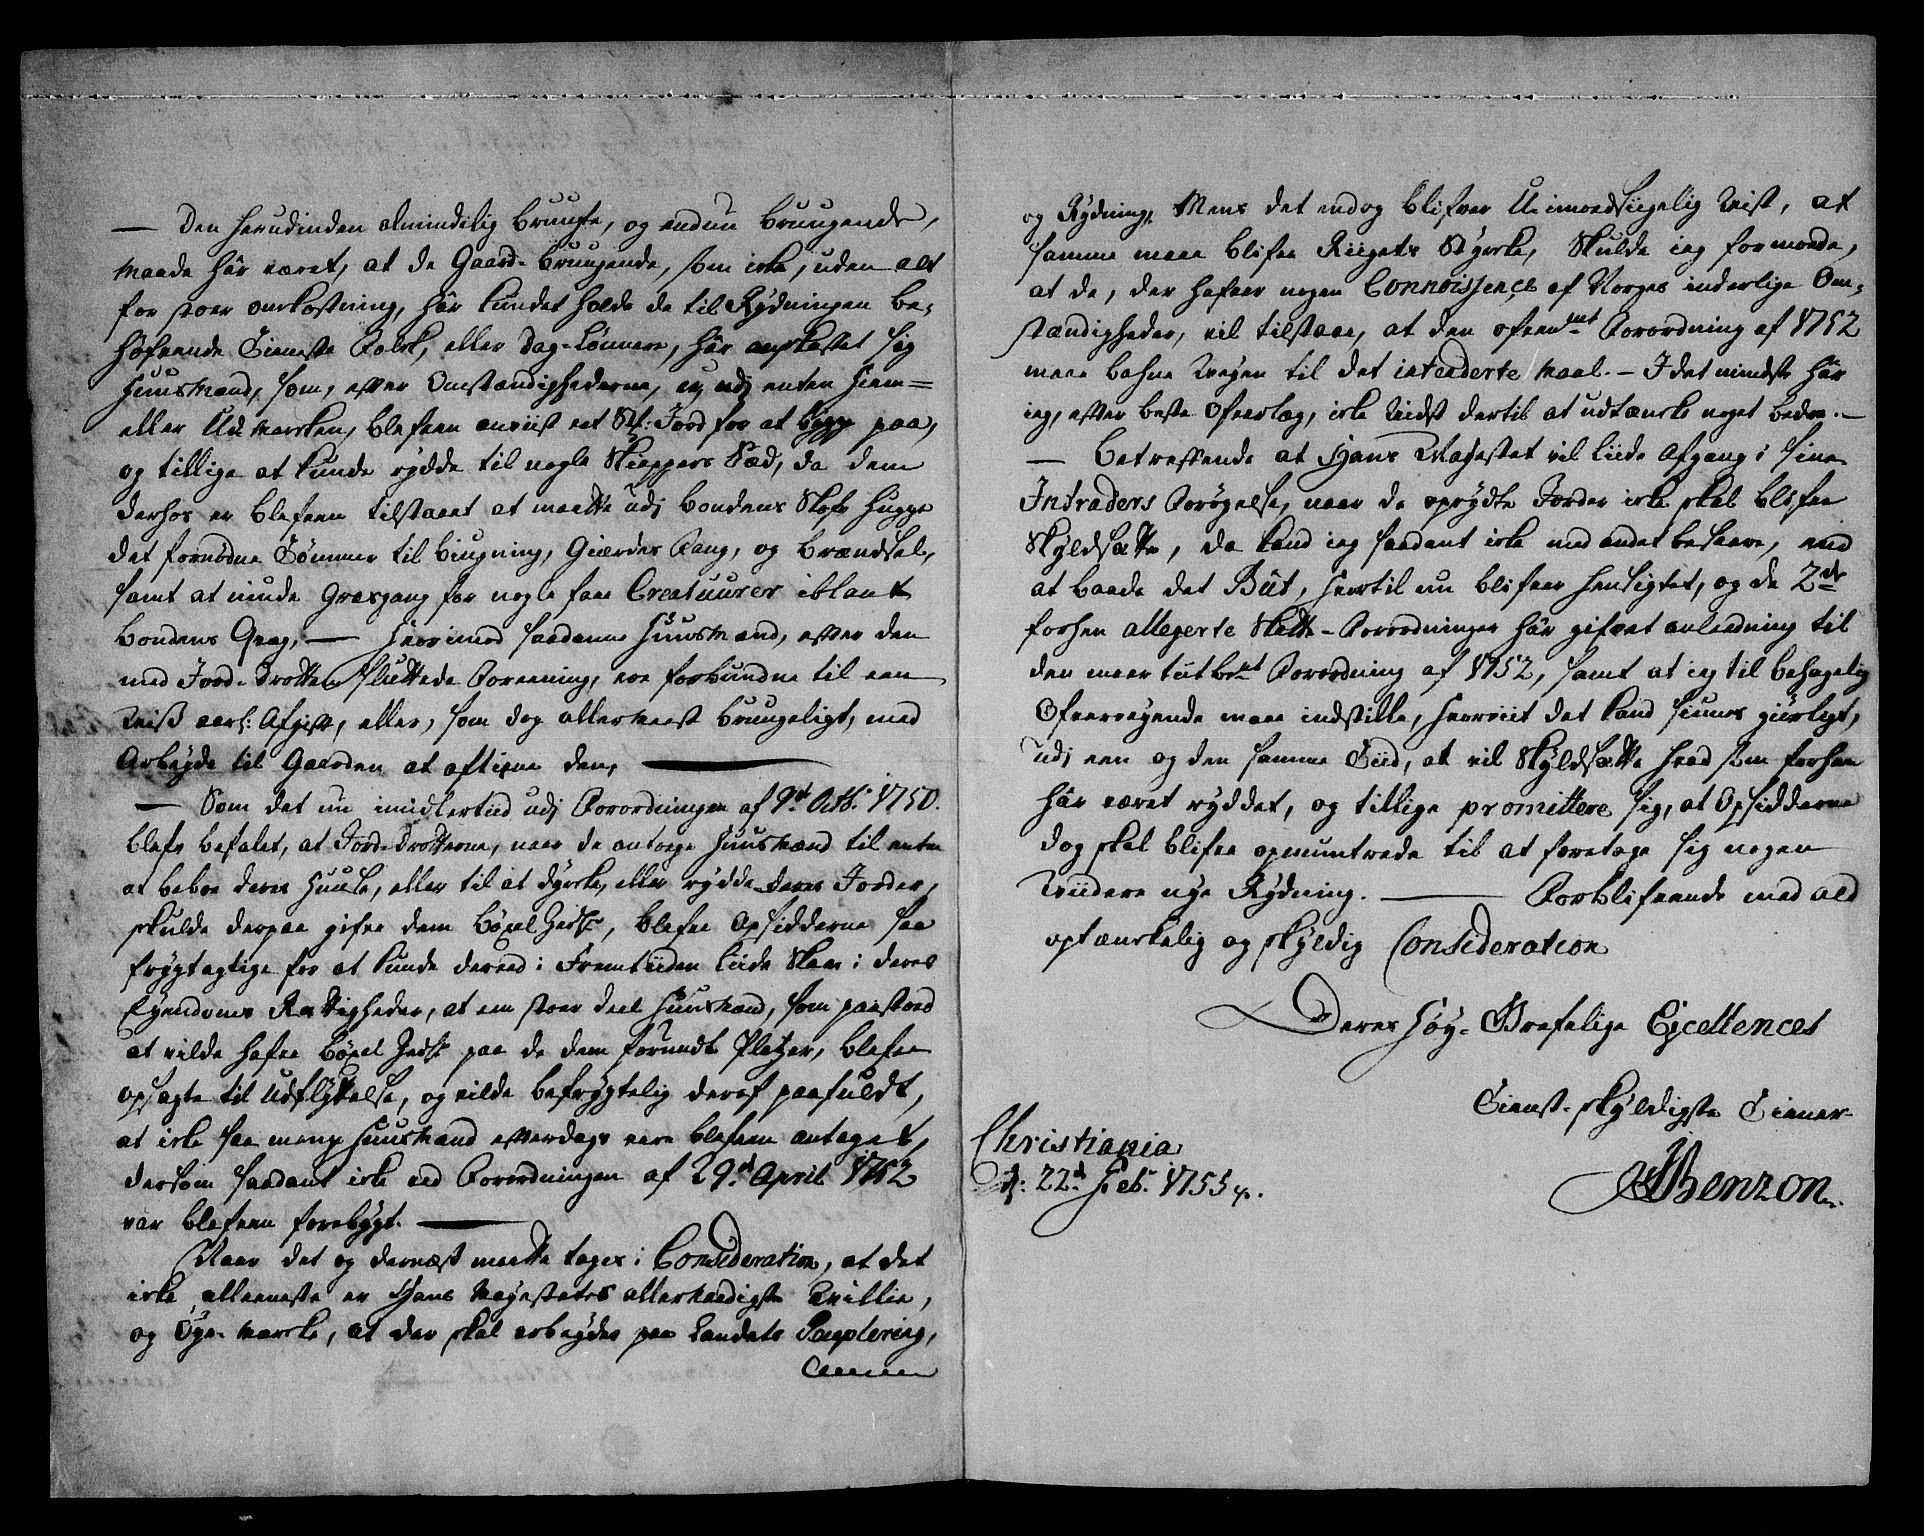 — Den herudinden almindelig bruugte, og endnu bruugende,
Maade hâr været, at de Gaard-bruugende, som icke, uden alt
for stoer omkostning, hâr kundet holde de til Rydningen be,
høfvende Tieneste Folck, eller Dag-Lønnere, hâr anskaffet sig
Huusmænd, som, efter Omstændighederne, er udj enten Hiem=
eller Udmarcken, blefven anviist eet St: Jord for at bygge paa,
og tillige at kunde rydde til nogle Skieppers Sæd, da dem
derhos er blefven tilstaaet at maatte udj bondens Skofv hugge
det fornødne Tømmer til biugning, Gierdes Fang, og brændsel,
samt at niude Græsgang for nogle faae Creatuurer iblant
bondens Qvæg, — Hvorimod saadanne Huusmænd, efter den
med Jord-Drotten sluttede Foreening, ere forbundne til een
Viss aarl: Afgift, eller, som dog allermeest bruugeligt, med
Arbeyde til Gaarden at aftiene den, —
— Som det nu imidlertiid udj Forordningen af 9de Octb: 1750.
blefv befalet, at Jord-Drotterne, naar de antoge Huusmænd til enten
at beboe deres Huuse, eller til at dyrcke, eller rydde deres Jorder,
skulde derpaa gifve dem Bøxel Zedle, blefve Opsidderne saa
frygtagtige for at kunde derved i Fremtiiden liide Skaar i deres
Eyendoms Rættigheder, at em stoer deel Huusmænd, som paastoed
at vilde hafve bøxel Zedle paa de dem forundte Pladzer, blefve
opsagte til udflyttelse, og vilde befrygtelig deraf paafuldt,
at icke saa mange Huusmænd efterdags vare blefven antaget,
dersom saadant icke ved Forordningen af 29de April 1752
var blefven forebygt. —
Naar det og dernæst maatte tages i Consideration, at det
icke alleeneste er Hans Mayestæts allernaadigste Villie,
og Øye-Mærcke, at der skal arbeydes paa Landets Peuplering,
og Rydning, Mens det endog blifver Uimodsiigelig Vist, at
samme maae blifve Riigets Styrcke, Skulde jeg formode,
at de, der hafver nogen Connoissence af Norges inderlige Om,
stændigheder, vil tilstaae, at den ofvenbmt Forordning af 1752
maae bahne Veyen til det intenderte Maal. — I det mindste hâr
ieg, efter beste Ofverlæg, icke Vidst dertil at udtæncke noget bedre. —
— Betreffende at Hans Mayestæt vil liide Afgang i sine
Intraders Forøgelse, naar de oprydte Jorder icke skal blifve
Skyldsatte, da kand ieg saadant icke med andet besvare, end
at baade det Büt, hvortil nu blifver hensigtet, og de 2de
forhen allegerte Skatte-Forordninger hâr gifvet anledning til
den meer titbmt Forordning af 1752, samt at ieg til behagelig
Ofverveyende maae indstille, hvorviit det kand siunes giørligt,
udj een og den samme Tiid, at vil Skyldsætte hvad som forhen
hâr været ryddet, og tillige promittere sig, at Opsidderne
dog skal blifve opmuntrede til at foretage sig nogen
Viidere nye Rydning. — Forblifvende med ald
optænckelig og skyldig Consideration
Deres Høy-Grefvelige Excellences
Tienst-skyldigste Tiener
Christiania
d: 22de Feb: 1755.
Benzon